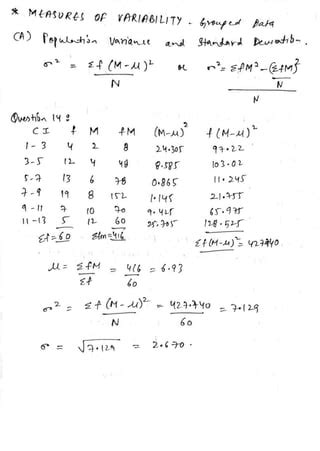 * MEASURES OF VARIABILITY - Grouped Data
(A) Population Variance and Standard Deviation -
σ² = Σf(M-μ)² / N or σ² = ΣfM² - (ΣfM)² / N / N
Question 14:
C I f M fM (M-μ)² f(M-μ)²
1 - 3 4 2 8 24.305 97.22
3-5 12 4 48 8.585 103.02
5-7 13 6 78 0.865 11.245
7-9 19 8 152 1.145 21.755
9-11 7 10 70 9.425 65.975
11-13 5 12 60 25.705 128.525
Σf=60 Σfm=416 Σf(M-μ)²= 427.740
μ = ΣfM / Σf = 416 / 60 = 6.93
σ² = Σf(M-μ)² / N = 427.740 / 60 = 7.129
σ = √7.129 = 2.670.